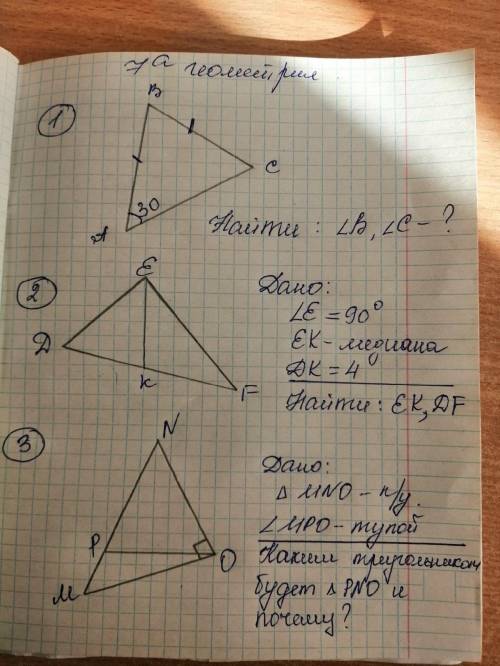 7а геометрия
1
В
С
30
А
Найти: ∠В, ∠С - ?
2
Е
D
К
F
Дано:
∠E = 90°
ЕК - медиана
DK = 4
Найти: EK, DF
3
N
P
O
M
Дано:
Δ MNO - п/у.
∠MPO - тупой
Каким треугольником
будет Δ PNO и
почему?